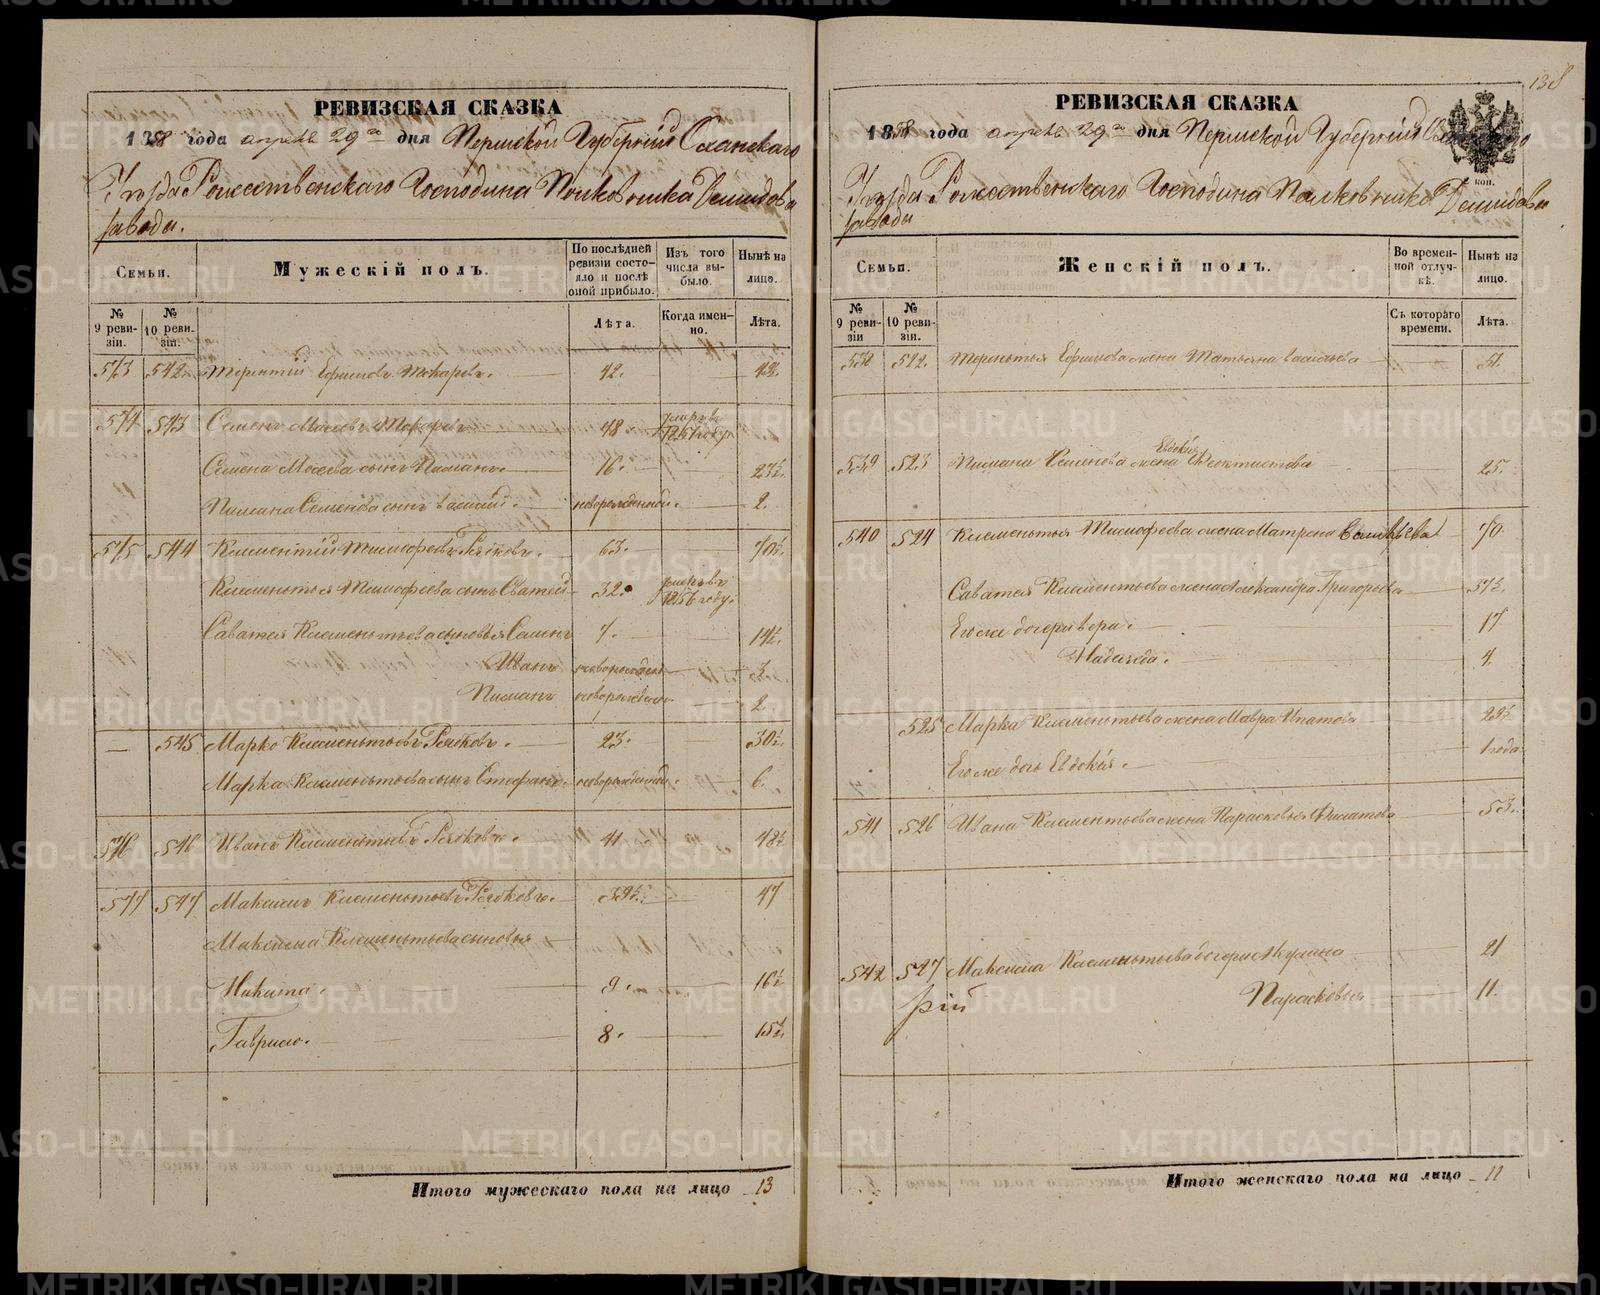 РЕВИЗСКАЯ СКАЗКА
1858 года апреля 29го дня Пермской Губернии Оханскаго
Уезда Рожественскаго Господина Полковника Демидова
завода.
Семьи.
Мужескій полъ.
По послѣдней ревизіи состояло и послѣ оной прибыло.
Изъ того числа выбыло.
Нынѣ на лицо.
№ 9 ревизіи.
№ 10 ревизіи.
Лѣта.
Когда именно.
Лѣта.
573 542. Терентий Ефимовъ Токаревъ. 42.
574 543 Семенъ Мосеевъ 48 умеръ в 1851 году
Семена Мосеева сынъ Пиманъ. 16. 23½.
Пимана Семенова сынъ Василий. новорожденной. 2.
575 544 Клементий Тимофеевъ 63. 70½.
Клементья Тимофеева сынъ Саватей 32. умеръ в 1856 году.
Саватея Клементьева сыновья Семенъ 7. 14½.
Иванъ новорожден 3.
Пиманъ новорожден 2
— 545 Марко Клементьевъ 23. 30½.
Марка Клементьева сынъ Стефанъ. новорожденный. 6.
576 546 Иванъ Клементьевъ 41 48½
577 547 Максимъ Клементьевъ 39½. 47
Максима Клементьева сыновья
Никита. 9. 16½
Гаврило. 8. 15½.
Итого мужескаго пола на лицо 13
138
РЕВИЗСКАЯ СКАЗКА
1858 года апреля 29го дня Пермской Губернии
коп.
Уезда Рожественскаго Господина Полковника Демидова
завода
Семьи.
Женскій полъ.
Во временной отлучкѣ.
Нынѣ на лицо.
№ 9 ревизіи
№ 10 ревизіи.
Съ котораго времени.
Лѣта.
538 522. Терентья Ефимова жена Татьяна Васильева 51.
Евдокия
539 523 Пимана Семенова жена Феоктистова 25.
540 524 Клементья Тимофеева жена Матрена 70.
Саватея Клементьева жена Александра Григорьева 37½.
Его же дочери Вера. 17
Надежда. 4.
525 Марка Клементьева жена Мавра Ипатова 29½
Его же дочь Евдокия. 1 года
541 526 Ивана Клементьева жена Парасковья Филатова 53.
542 527 Максима Клементьева дочери Акулина 21
Парасковья 11.
рій
Итого женскаго пола на лицо 11
METRIKI.GASO-URAL.RU